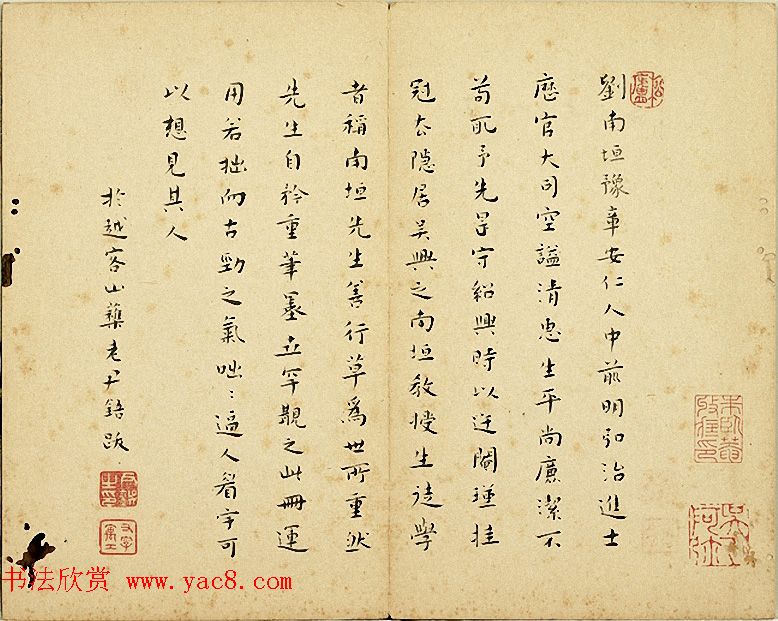 劉南垣豫章安仁人中前明弘治進士
歷官大司空謚清惠生平尚廉潔不
苟取予先是守紹興時以迕閹瑾挂
冠去隱居吳興之南垣教授生徒學
者稱南垣先生善行草為世所重然
先生自矜重筆墨立罕覯之此冊運
用若拙而古勁之氣咄〻逼人看字可
以想見其人
於越客山藥老尹鋙跋
书法欣赏 www.yac8.com